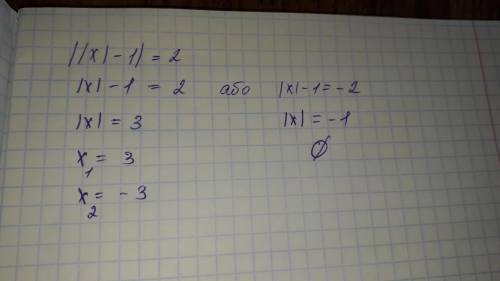 ||x|-1|=2
|x|-1 = 2 або |x|-1=-2
|x|=3 |x|=-1
x₁= 3 ∅
x₂= -3